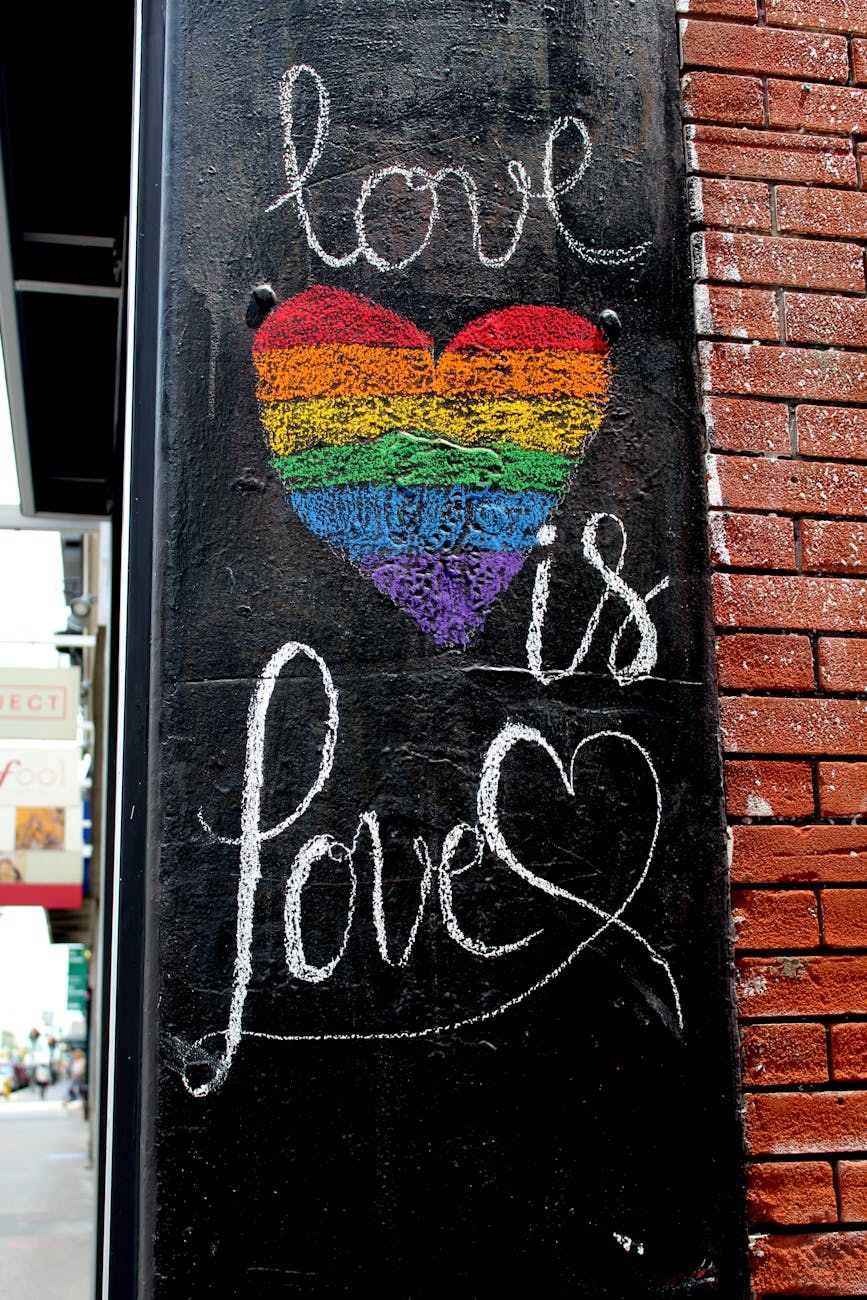 love
is
Love
JECT
fool